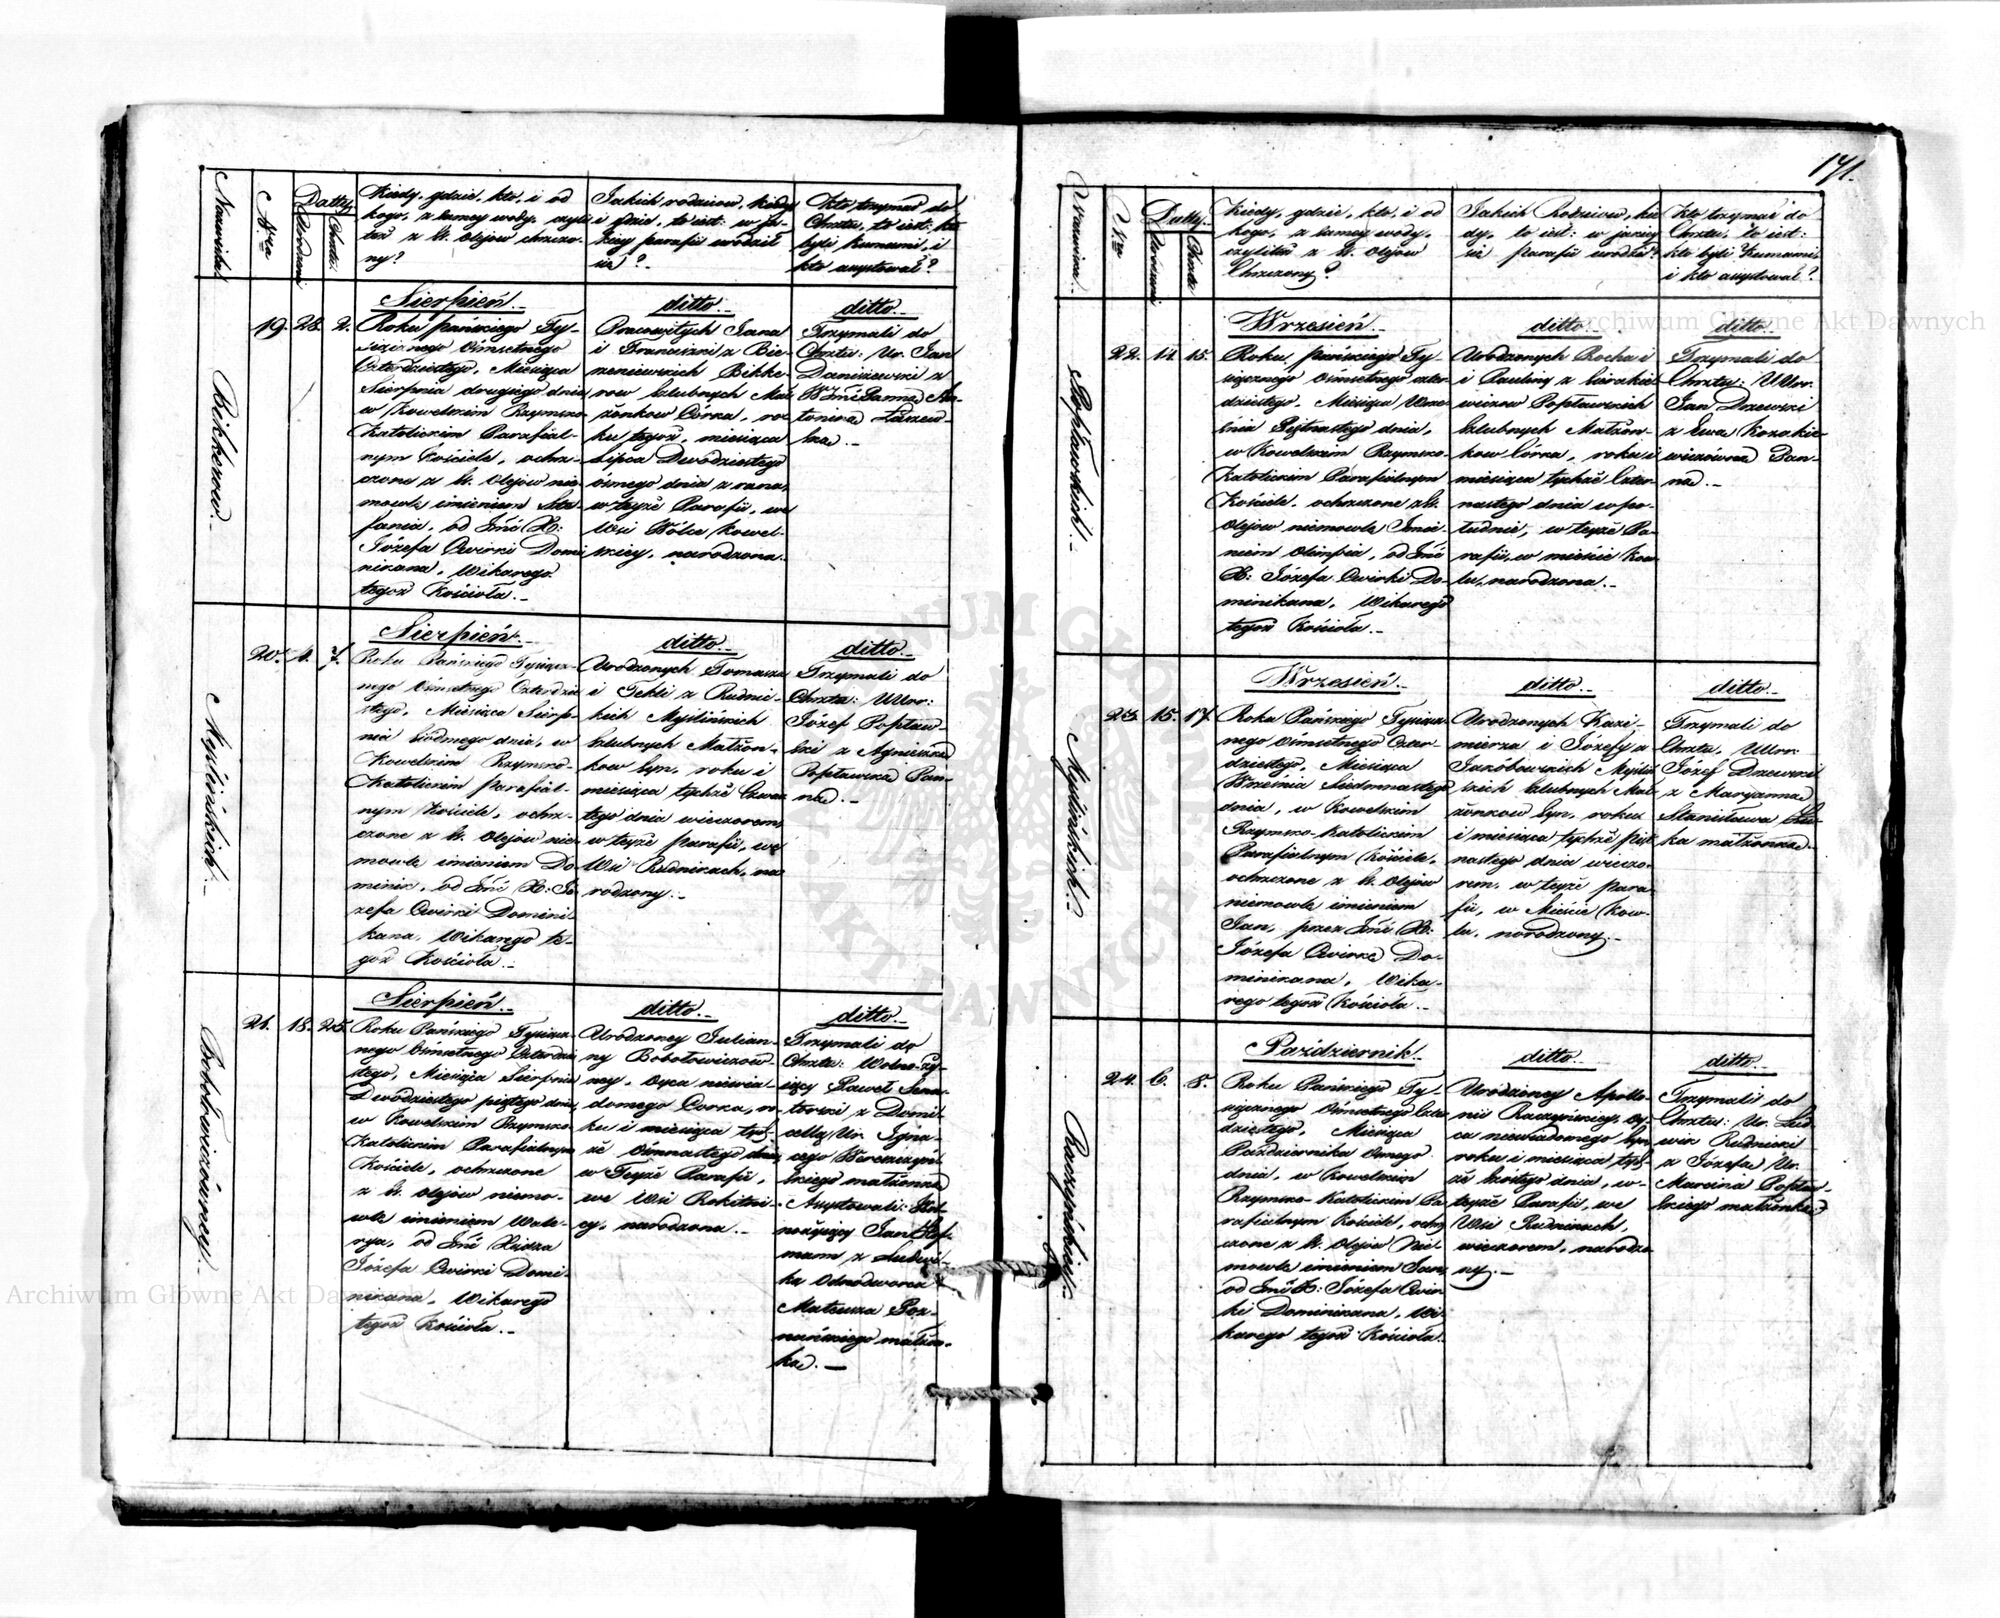 Nazwiska
Nro
Datty
Urodzenia
Chrztu
Kiedy, gdzie, kto, i od
kogo, z samey wody, czyli
też z St. Olejow chrzczo-
ny?
Jakich rodzicow, kiedy
i gdzie, to iest: w ja-
kiey parafii urodził
się?
Kto trzymał do
Chrztu, to iest: kto
byli kumami, i
kto assystował?
Bikkerow.
19. 28. 2.
Sierpień.
Roku pańskiego Ty-
siącznego Osmsetnego
Czterdziestego, Miesiąca
Sierpnia drugiego dnia
w Kowelskim Rzymsko
Katolickim Parafial-
nym Kościele, ochrz-
czone z St. Olejow nie-
mowle imieniem Ste-
fania, od Jmć X:
Józefa Cwirki Domi-
nikana, Wikarego
tegoż Kościoła.
ditto.
Pracowitych Jana
i Franciszki z Bie-
rzeniewskich Bikke-
row szlubnych Mał-
żonkow Córka, ro-
ku tegoż, miesiąca
Lipca Dwódziestego
ósmego dnia z rana,
w teyże Parafii, we
Wsi Wólce Kowel-
skiey, narodzona.
ditto.
Trzymali do
Chrztu: Ur. Jan
Daniszewski z
WJmć Panną An-
toniną
Myślińskich.
20. 4. 7.
Sierpień.
Roku Pańskiego Tysiącz-
nego Osmsetnego Czterdzie-
stego, Miesiąca Sierp-
nia siodmego dnia, w
Kowelskim Rzymsko-
Katolickim Parafial-
nym Kościele, ochrz-
czone z St. Olejow nie-
mowle imieniem Do-
minik, od Jmć X: Jo-
zefa Cwirki Domini-
kana, Wikarego te-
goż Kościoła.
ditto.
Urodzonych Tomasza
i Tekli z Rudnic-
kich Myślińskich
szlubnych Małżon-
kow Syn, roku i
miesiąca tychże Czwar-
tego dnia wieczorem,
w teyże parafii, we
Wsi Rudnikach, na-
rodzony.
ditto.
Trzymali do
Chrztu: Uror:
Józef Popław-
ski z Agnieszką
Popławską Pan-
ną.
Bobołowiczówney.
21. 18. 25.
Sierpień.
Roku Pańskiego Tysiącz-
nego Osmsetnego Czterdzie-
stego, Miesiąca Sierpnia
Dwódziestego piątego dnia,
w Kowelskim Rzymsko
Katolickim Parafialnym
Kościele, ochrzczone
z St. Olejow niemo-
wle imieniem Wale-
rya, od Jmć Xiędza
Józefa Cwirki Domi-
nikana, Wikarego
tegoż Kościoła.
ditto.
Urodzoney Julian-
ny Bobołowiczow-
ney, Oyca niewia-
domego Corka, ro-
ku i miesiąca tych-
że Osmnastego dnia,
w Teyże Parafii,
we Wsi Rokitni-
cy, narodzona.
ditto.
Trzymali do
Chrztu: Wolno-ży-
iący Paweł
z Domi-
cellą Ur. Igna-
cego Wereszczyń-
skiego małżonką
Assystowali:
Jan
mann z Ludwi-
ką
Mateusza Poz-
nańskiego małżon-
ką.
171.
Nazwiska
Nro
Datty.
Urodzenia
Chrztu
Kiedy, gdzie, kto, i od
kogo, z samey wody,
czyliteż z St. Olejow
Chrzczony?
Jakich Rodzicow, kie-
dy, to iest: w jakiey
się Parafii urodził?
Kto trzymał do
Chrztu, to iest:
kto byli Kumami,
i kto assystował?
Popławskich.
22. 14. 15.
Wrzesień.
Roku, pańskiego Ty-
siącznego Osmsetnego czter-
dziestego, Miesiąca Wrze-
śnia Piętnastego dnia,
w Kowelskim Rzymsko-
Katolickim Parafialnym
Kościele, ochrzczone z St.
Olejow niemowle Imie-
niem Olimpia, od Jmć
X: Józefa Cwirki Do-
minikana, Wikarego
tegoż Kościoła.
ditto.
Urodzonych Rocha i
i Pauliny z Sierakie-
wiczow Popławskich
szlubnych Małżon-
kow Córka, roku i
miesiąca tychże Czter-
nastego dnia w po-
łudnie, w teyże Pa-
rafii, w mieście Kow-
lu, narodzona.
ditto.
Trzymali do
Chrztu: Uror.
Jan Drzewski
z Ewą Kozakie-
wiczówną Pan-
ną.
Myślińskich.
23. 15. 17.
Wrzesień.
Roku Pańskiego Tysiącz-
nego Osmsetnego Czter-
dziestego, Miesiąca
Września Siedmnastego
dnia, w Kowelskim
Rzymsko-Katolickim
Parafialnym Kościele,
ochrzczone z St. Olejow
niemowle imieniem
Jan, przez Jmć X:
Józefa Cwirkę Do-
minikana, Wika-
rego tegoż Kościoła.
ditto.
Urodzonych Kazi-
mierza i Józefy z
Jakóbowskich Myśliń-
skich szlubnych Mał-
żonkow Syn, roku
i miesiąca tychże Pięt-
nastego dnia wieczo-
rem, w teyże Para-
fii, w Mieście Kow-
lu, narodzony.
ditto.
Trzymali do
Chrztu, Uror.
Józef Drzewski
z Maryanną
Stanisława
małżonką.
Raczyńskiey.
24. 6. 8.
Październik.
Roku Pańskiego Ty-
siącznego Osmsetnego Czter-
dziestego, Miesiąca
Października Osmego
dnia, w Kowelskim
Rzymsko-Katolickim Pa-
rafialnym Kościele, ochrz-
czone z St. Olejow Nie-
mowle imieniem Jan,
od Jmć X: Józefa Cwir-
ki Dominikana, Wi-
karego tegoż Kościoła.
ditto.
Urodzoney Apollo-
nii Raczyńskiey, Oy-
ca niewiadomego Syn,
roku i miesiąca tych-
że Szóstego dnia, w
teyże Parafii, we
Wsi Rudnikach,
wieczorem, narodzo-
ny.
ditto.
Trzymali do
Chrztu: Ur. Lud-
wik Rudnicki
z Józefą Ur.
Marcina Popław-
skiego małżonką
Archiwum Główne Akt Dawnych
Archiwum Główne Akt Dawnych
ARCHIWUM GŁÓWNE AKT DAWNYCH